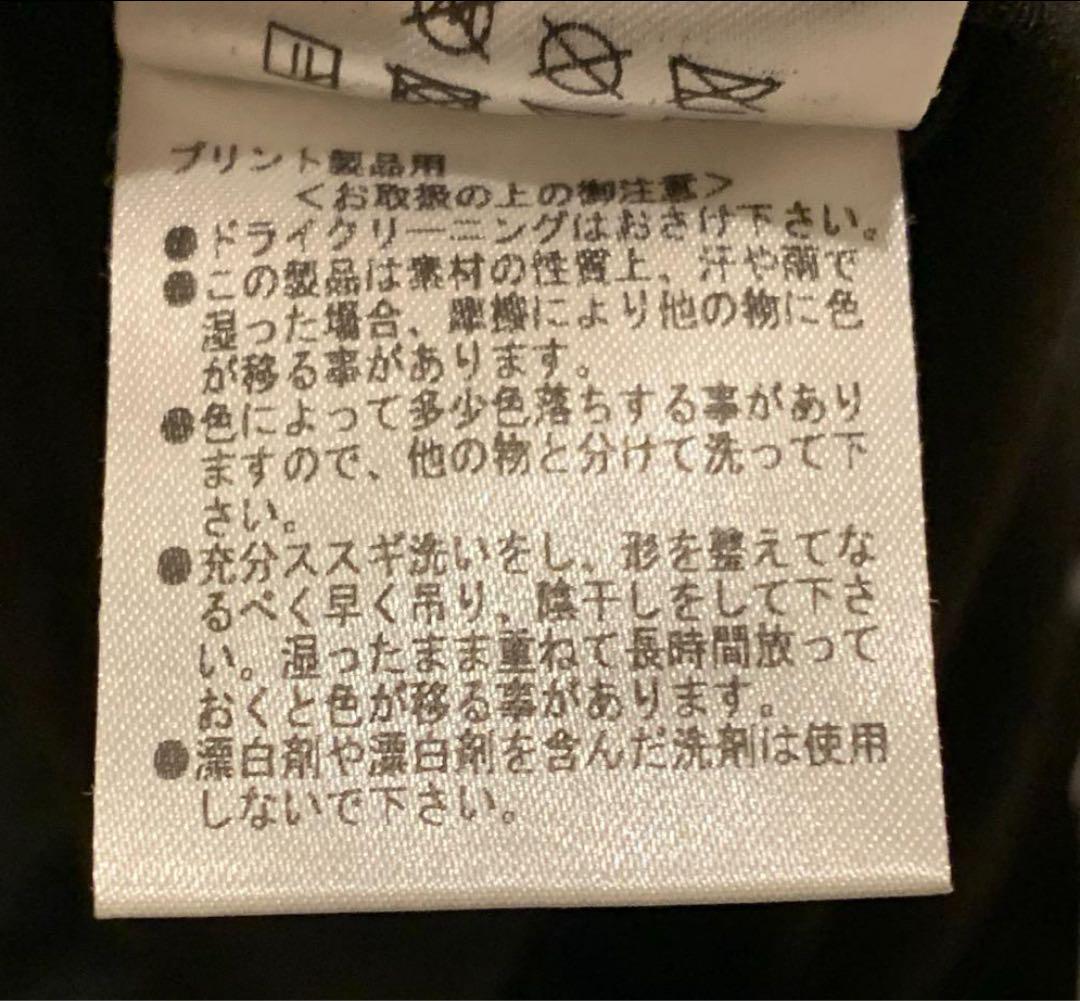 プリント製品用
<お取扱の上の御注意>
●ドライクリーニングはおさけ下さい。
●この製品は素材の性質上、汗や雨で
湿った場合、摩擦により他の物に色
が移る事があります。
●色によって多少色落ちする事があり
ますので、他の物と分けて洗って下
さい。
●充分ススギ洗いをし、形を整えてな
るべく早く吊り、陰干しをして下さ
い。湿ったまま重ねて長時間放って
おくと色が移る事があります。
●漂白剤や漂白剤を含んだ洗剤は使用
しないで下さい。